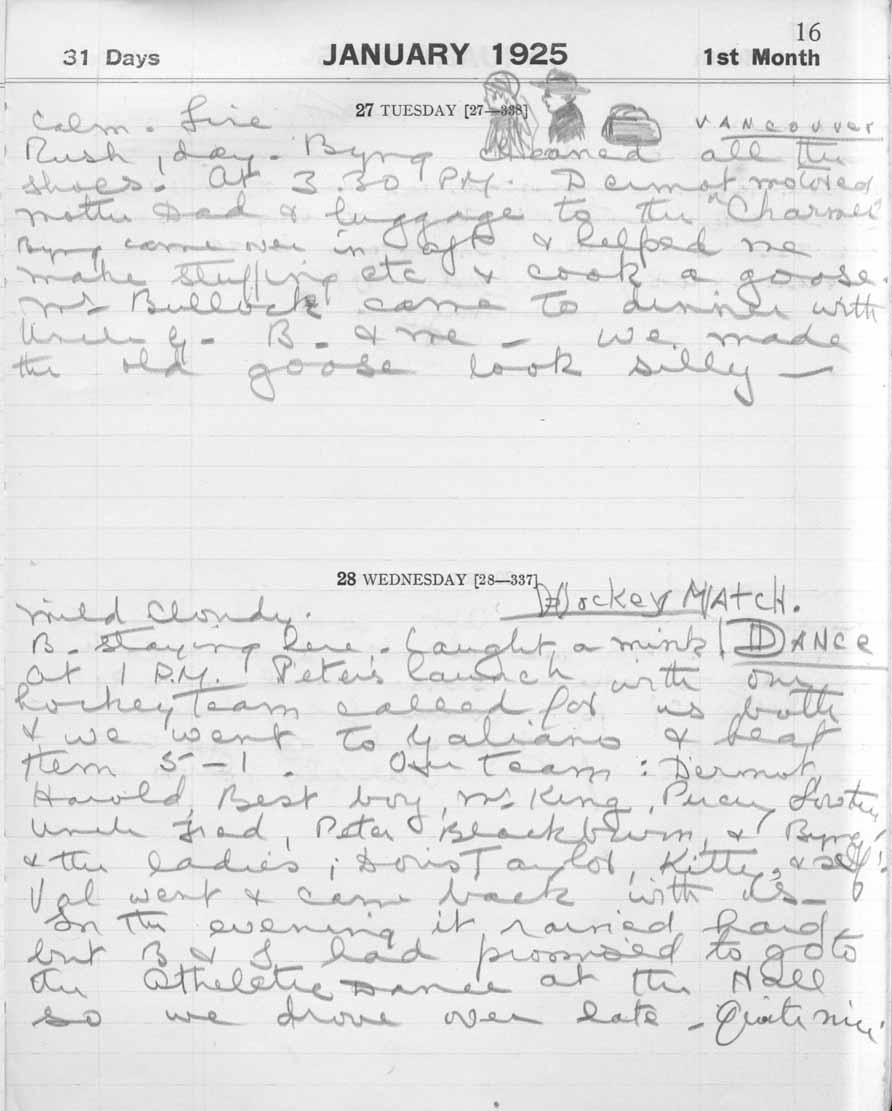 16
31 Days JANUARY 1925 1st Month
27 TUESDAY [27—338]
Calm. Fine VANCOUVER
Rush, day. Byng cleaned all the
shoes. At 3.30 P.M. Dermot motored
mother Dad & luggage to the "Charmer"
Byng came over in aft & helped me
make stuffing etc & cook a goose.
Mr Bullock came to dinner with
Uncle G. B. & me — We made
the old goose look silly —
28 WEDNESDAY [28—337]
mild cloudy. Hockey MATCH.
B. staying here. Caught a mink! DANCE
At 1 P.M. Peter's launch with our
hockey team called for us both
& we went to Galiano & beat
them 5-1. Our team: Dermot,
Harold, Best boy, Mr King, Percy Lowther,
Uncle Fred, Peter Blackburn, & Byng,
& the ladies; Doris Taylor, Kitty, & self!
Val went & came back with us—
In the evening it rained hard
but B & I had promised to go to
the Atheletic Dance at the Hall
so we drove over late - Quite nice.